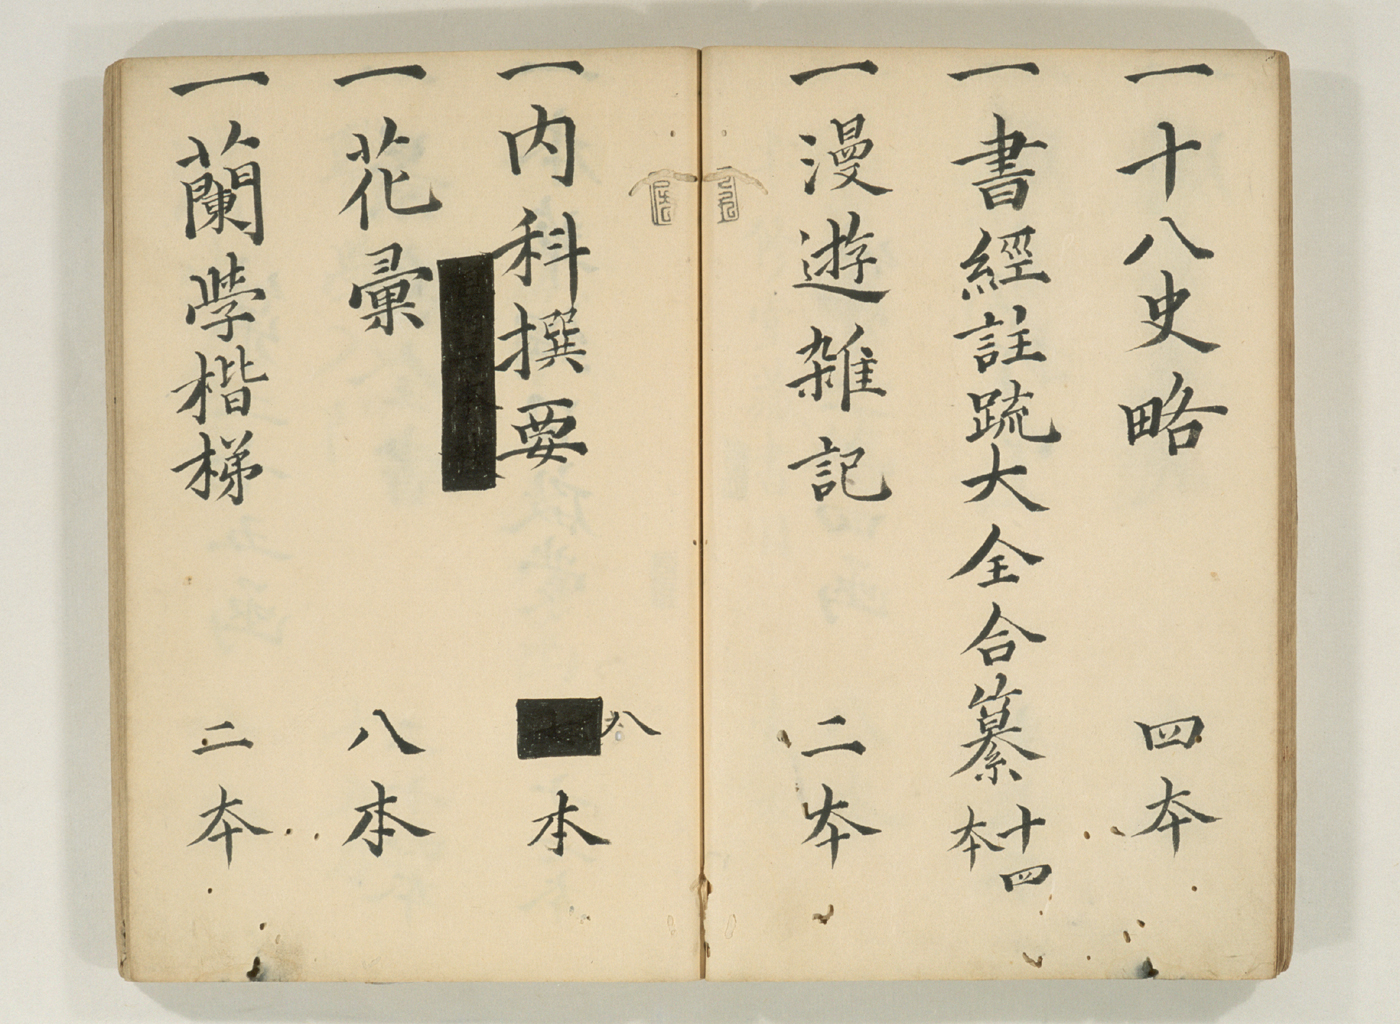 一十八史略 四本
一書經註疏大全合纂 十四本
一漫遊雑記 二本
一内科撰要 八本
一花彙 八本
一蘭学楷梯 二本